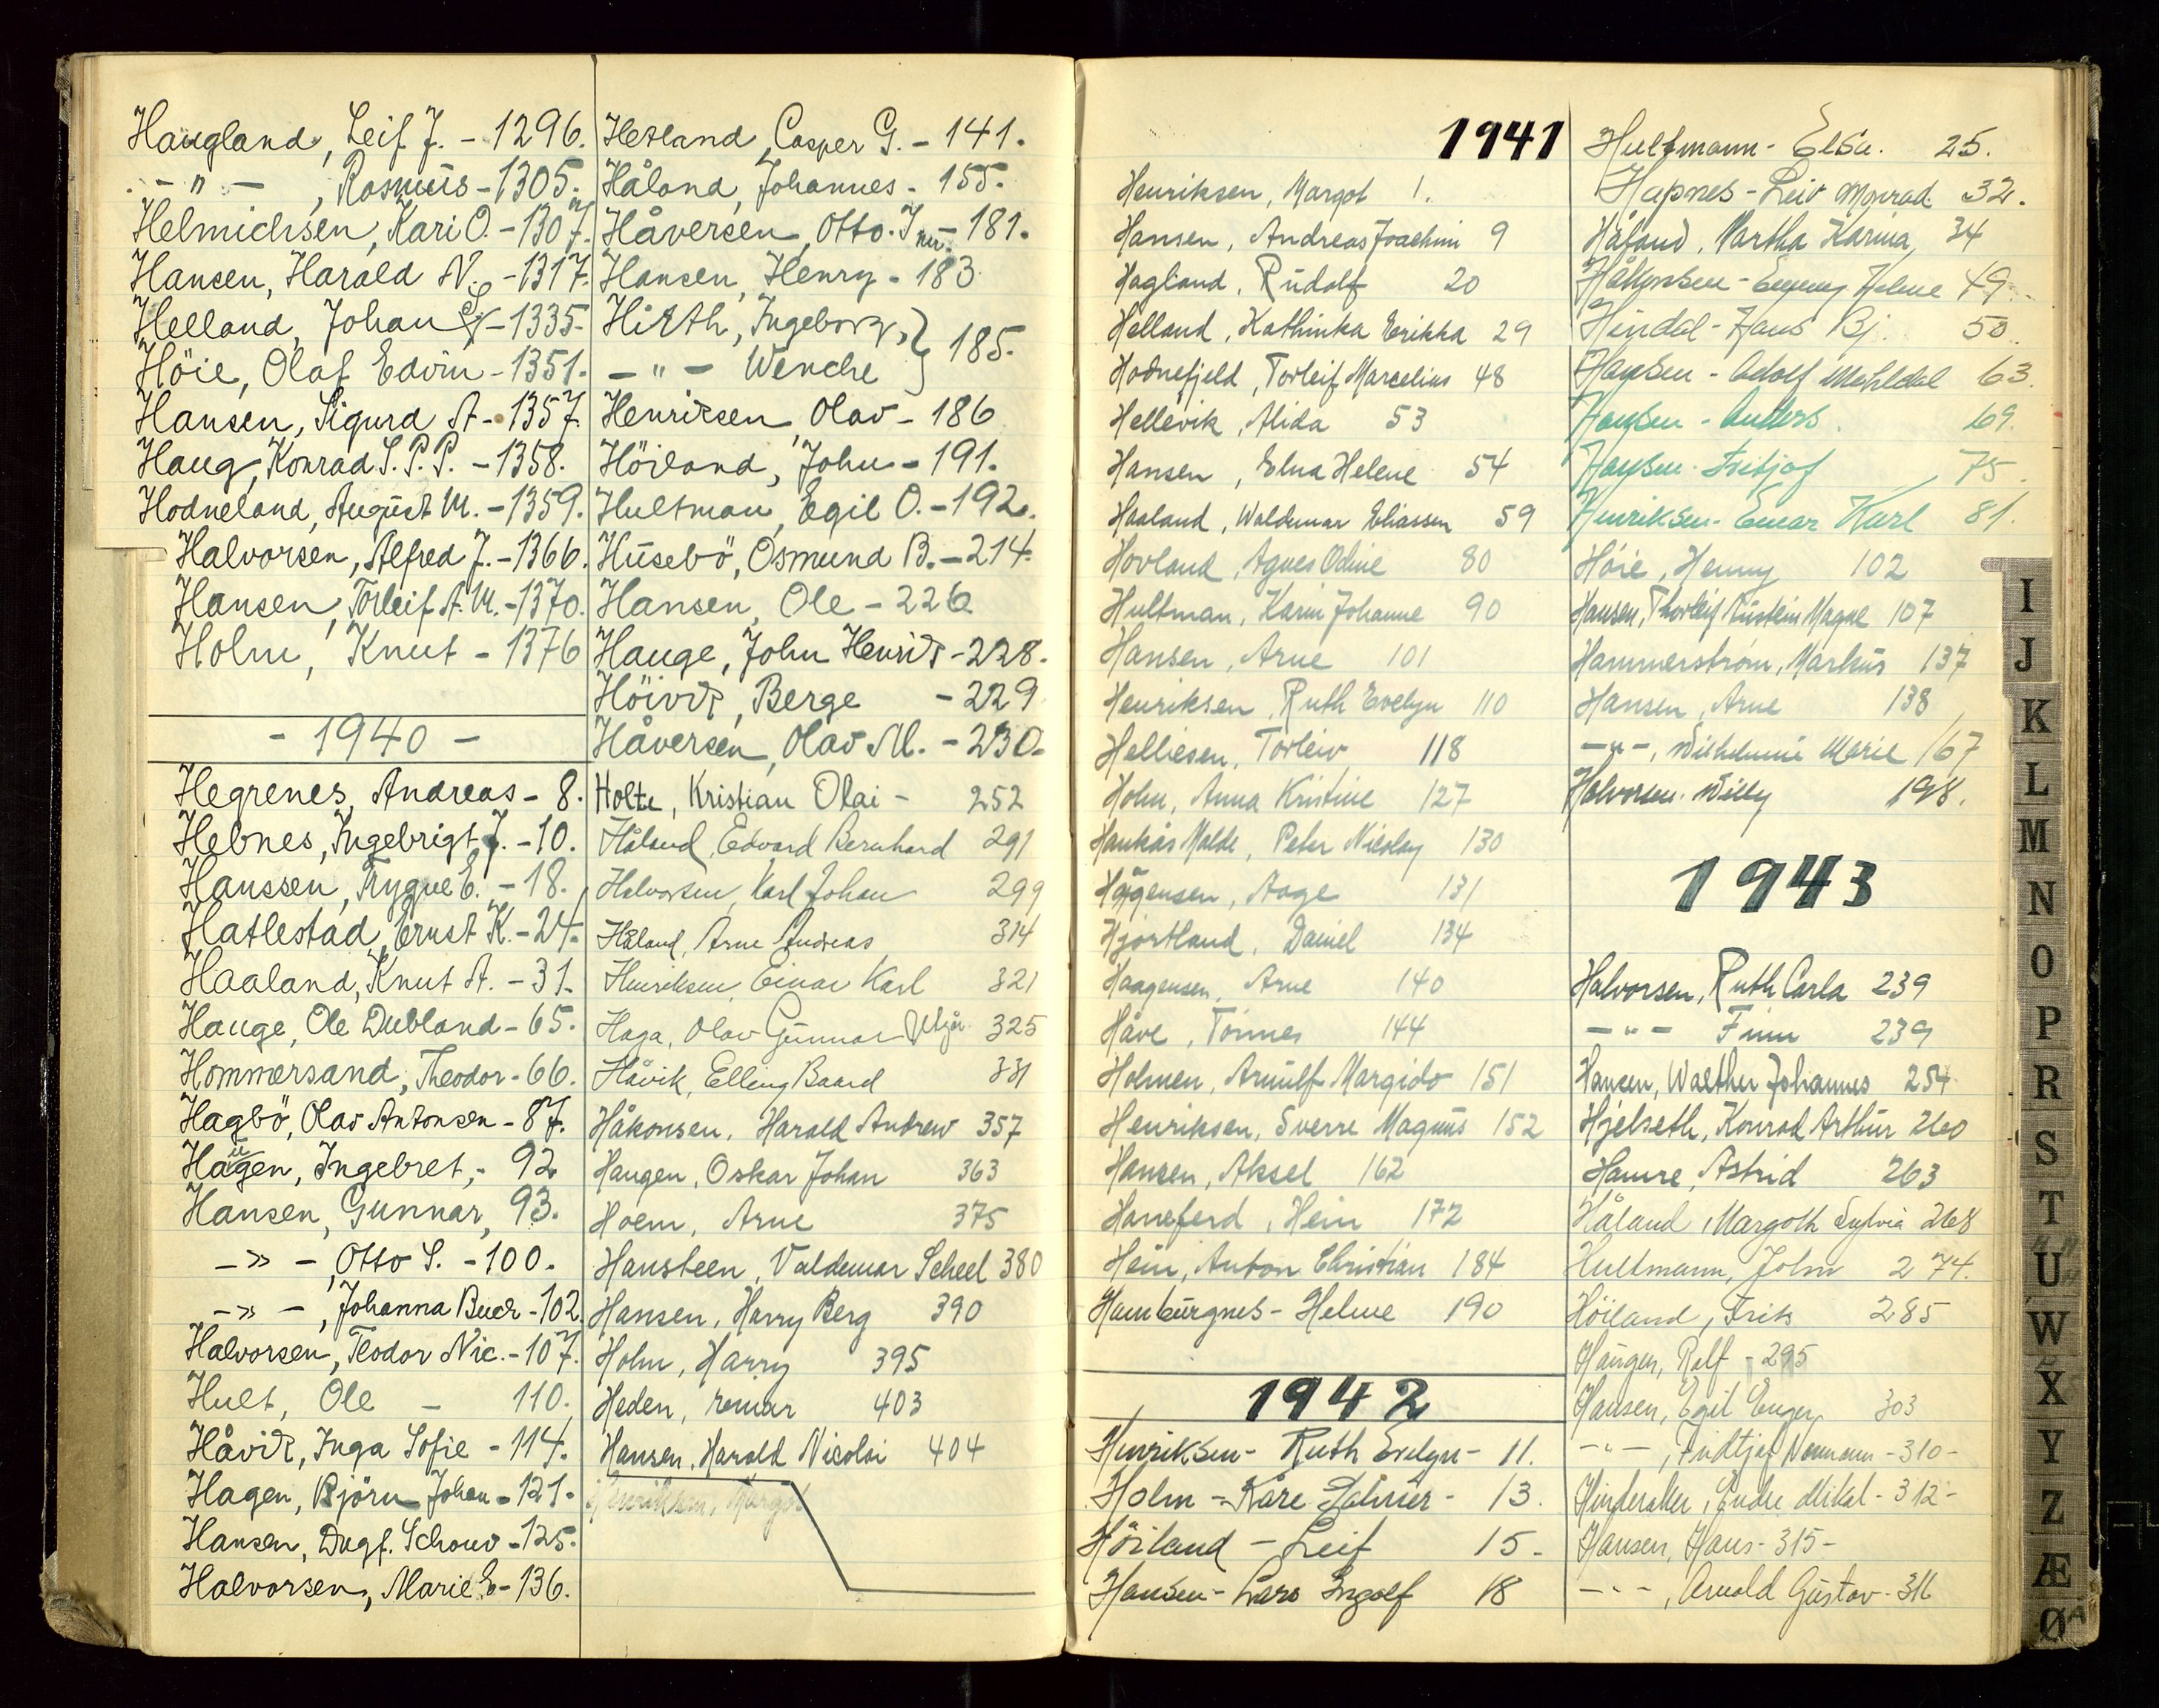 Haugland, Leif J. - 1296.
- " - , Rasmus - 1305.
Helmichsen, Kari O. - 1307.
Hansen, Harald N. - 1317.
Helland, Johan - 1335.
Höie, Olaf Edvin - 1351.
Hansen, Sigurd A - 1357.
Haug, Konrad S. P. P. - 1358.
Hodneland, August M. - 1359.
Halvorsen, Alfred J. - 1366.
Hansen, Torleif A. M. - 1370.
Holm, Knut - 1376
- 1940 -
Hegrenes, Andreas - 8.
Hebnes, Ingebrigt J. - 10.
Hanssen, Trygve E. - 18.
Hatlestad, Ernst K. - 24.
Haaland, Knut A. - 31.
Hauge, Ole Dubland - 65.
Hommersand, Theodor - 66.
Hagbö, Olav Antonsen - 87.
Haugen, Ingebret, - 92
Hansen, Gunnar, 93.
- » - , Otto S. - 100.
- » - , Johanna Buch - 102.
Halvorsen, Teodor Nic. - 107.
Hult, Ole - 110.
Håvik, Inga Sofie - 114.
Hagen, Björn Johan - 121.
Hansen, Dagf. Schouw - 125.
Halvorsen, Marie E - 136.
Hetland, Casper G. - 141.
Håland, Johannes - 155.
Håversen, Otto. - 181.
Hansen, Henry - 183
Hirth, Ingeborg, } 185.
- " - Wenche
Henriksen, Olav - 186
Höiland, John - 191.
Hultman, Egil O. - 192.
Husebö, Osmund B. - 214.
Hansen, Ole - 226
Hauge, John Henrik - 228.
Höivik, Berge - 229
Håversen, Olav M. - 230.
Holte, Kristian Olai - 252
Håland, Edvard Bernhard 291
Halvorsen, Karl Johan 299
Håland, Arne Andreas 314
Henriksen, Einar Karl 321
Haga, Olav Gunnar 325
Håvik, Elling Baard 331
Håkonsen, Harald Andrew 357
Haugen, Oskar Johan 363
Hoem, Arne 375
Hansteen, Valdemar Scheel 380
Hansen, Harry Berg 390
Holm, Harry 395
Heden, 403
Hansen, Harald Nicolai 404
Henriksen, Margot
1941
Henriksen, Margot 1.
Hansen, Andreas Joachim 9
Hagland, Rudolf 20
Helland, Kathinka Erikka 29
Hodnefjeld, Torleif Marcelius 48
Hellevik, Alida 53
Hansen, Elna Helene 54
Haaland, Waldemar Eliassen 59
Hovland, Agnes Odine 80
Hultman, Karin Johanne 90
Hansen, Arne 101
Henriksen, Ruth Evelyn 110
Helliesen, Torleiv 118
Holm, Anna Kristine 127
Haukås Malde, Peter Nicolay 130
Haagensen, Aage 131
Hjortland, Daniel 134
Haagensen, Arne 140
Håve, Tönnes 144
Holmen, Arnulf Margido 151
Henriksen, Sverre Magnus 152
Hansen, Aksel 162
Haneferd, Hein 172
Hein, Anton Christian 184
Hamburgnes - Helene 190
1942
Henriksen - Ruth Evelyn - 11.
Holm - Kåre - 13.
Höiland - Leif 15 -
Hansen - Lars Ingolf 18
Hultmann - Elsa. 25.
Hapnes - Leiv Monrad 32.
Håland, Martha Karina, 34
Håkonsen - Helene 49.
Hindal - Hans Bj. 50.
Hansen - Adolf 63.
Hansen - Anders. 69.
Hansen - Fritjof 75.
Henriksen - Einar Karl 81.
Höie, Henny 102
Hansen, Thorleif Austein Magne 107
Hammerstrøm, Markus 137
Hansen, Arne 138
- " - , Wilhelmine Marie 167
Halvorsen. Willy 198.
1943
Halvorsen, Ruth Carla 239
- " - Finn 239
Hansen, Walther Johannes 254
Hjelseth, Konrad Arthur 260
Hamre, Astrid 263
Håland, Margoth Sylvia 268
Hultmann, John 274.
Höiland, Frits 285
Haugen, Rolf - 295
Hansen, Egil 303
- " - , Fridtjof Normann - 310 -
Hinderaker, Endre Mikal - 312 -
Hansen, Hans - 315 -
- " - , Arnold Gustav - 316
I
J
K
L
M
N
O
P
R
S
T
U
W
X
Y
Z
Æ
Ø